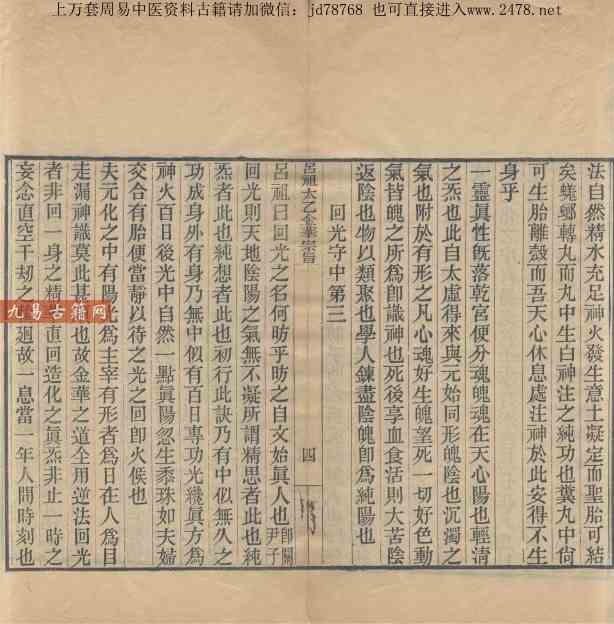 上万套周易中医资料古籍请加微信：jd78768 也可直接进入www.2478.net
法自然精水充足神火發生意土凝定而聖胎可結
矣蜣螂轉丸而九中生白神注之純功也糞丸中尙
可生胎離殼而吾天心休息處注神於此安得不生
身乎
一靈眞性旣落乾宮便分魂魄魂在天心陽也輕淸
之炁也此自太虛得來與元始同形魄陰也沉濁之
氣也附於有形之凡心魂好生魄望死一切好色動
氣皆魄之所爲卽識神也死後享血食活則大苦陰
返陰也物以類聚也學人鍊盡陰魄卽爲純陽也
回光守中第三
呂祖太乙金華宗旨
四
呂祖曰回光之名何昉乎昉之自文始眞人也卽關尹子
回光則天地陰陽之氣無不凝所謂精思者此也純
炁者此也純想者此也初行此訣乃有中似無久之
功成身外有身乃無中似有百日專功光纔眞方爲
神火百日後光中自然一點眞陽忽生黍珠如夫婦
交合有胎便當靜以待之光之回卽火候也
夫元化之中有陽光爲主宰有形者爲日在人爲目
走漏神識莫此甚也故金華之道全用逆法回光
者非回一身之精直回造化之眞炁非止一時之
妄念直空千刼之廻故一息當一年人間時刻也
九易古籍网